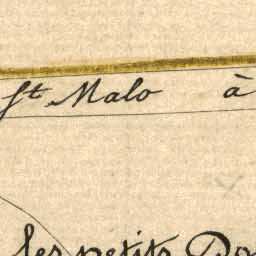 St Malo à
les petits